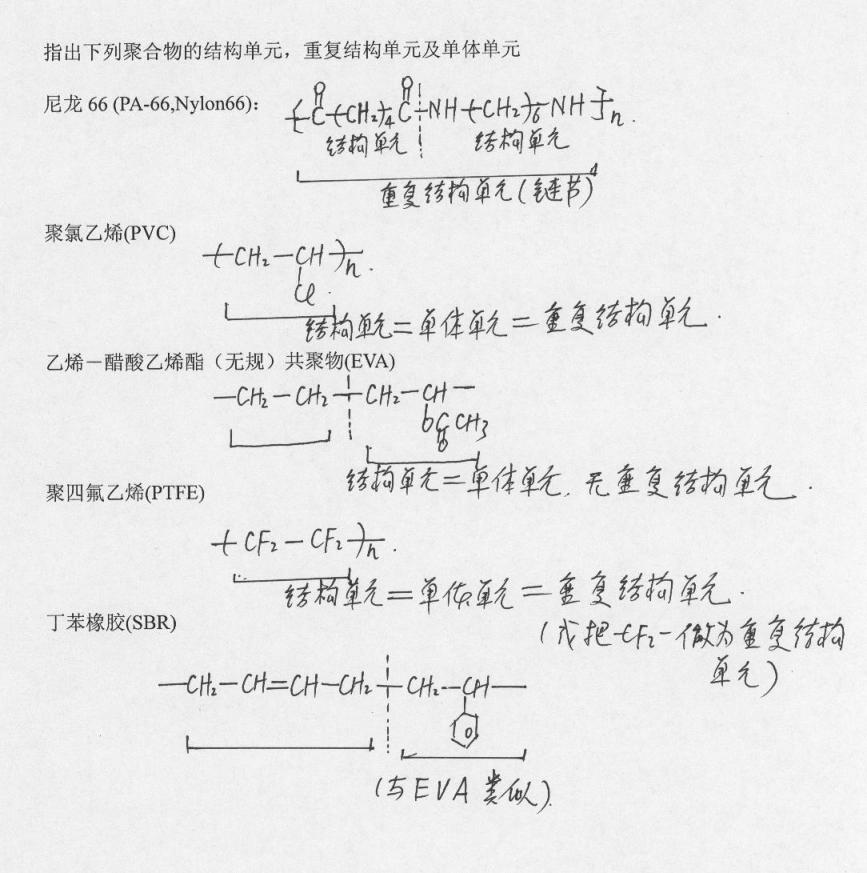 指出下列聚合物的结构单元，重复结构单元及单体单元
尼龙 66 (PA-66,Nylon66)：
O O
[C(CH₂)₄C-NH(CH₂)₆NH]n.
结构单元 结构单元
重复结构单元(链节)
聚氯乙烯(PVC)
(CH₂-CH)n.
Cl.
结构单元=单体单元=重复结构单元.
乙烯－醋酸乙烯酯（无规）共聚物(EVA)
-CH₂-CH₂-CH₂-CH-
OCCH₃
O
结构单元=单体单元, 无重复结构单元.
聚四氟乙烯(PTFE)
(CF₂-CF₂)n.
结构单元=单体单元=重复结构单元.
(或把-CF₂-做为重复结构
单元)
丁苯橡胶(SBR)
-CH₂-CH=CH-CH₂-CH₂-CH-
(与EVA类似).